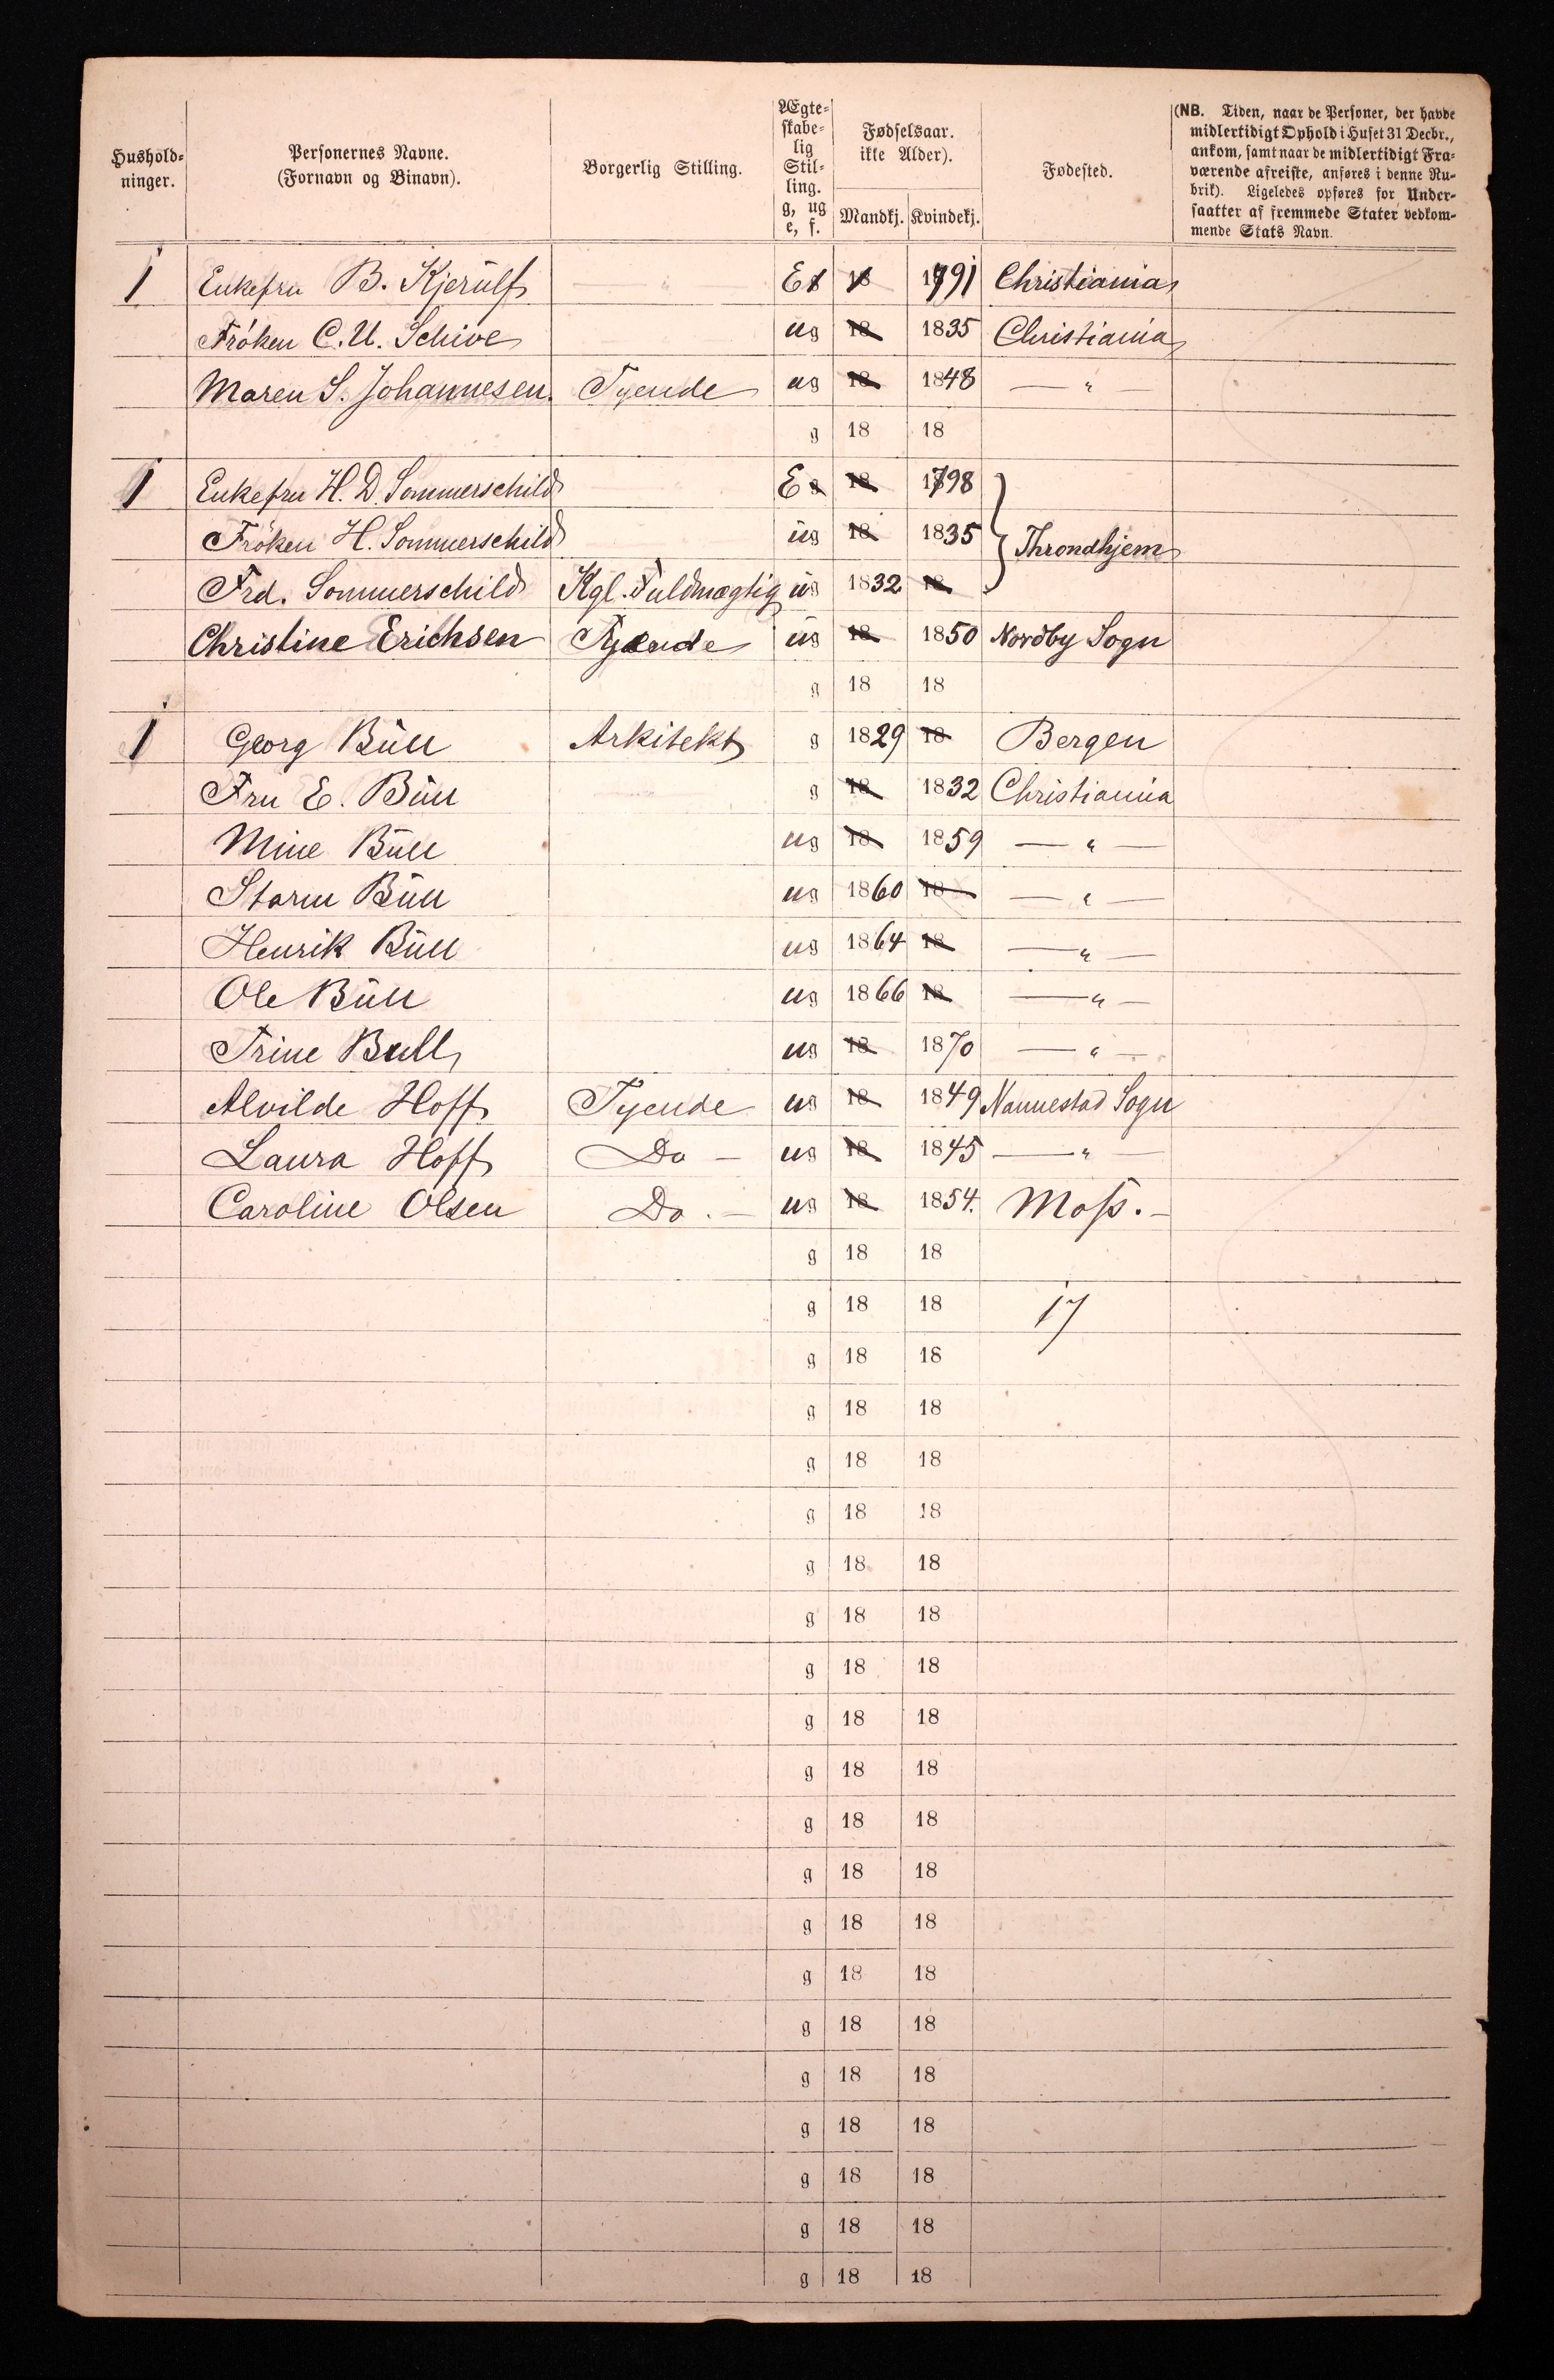 Hushold-
ninger.
Personernes Navne.
(Fornavn og Binavn).
Borgerlig Stilling.
Ægte-
skabe-
lig
Stil-
ling.
g, ug
e, f.
Fødselsaar.
ikke Alder).
Mandkj. Kvindekj.
Fødested.
(NB. Tiden, naar de Personer, der havde
midlertidigt Ophold i Huset 31 Decbr.,
ankom, samt naar de midlertidigt Fra-
værende afreiste, anføres i denne Ru-
brik). Ligeledes opføres for Under-
saatter af fremmede Stater vedkom-
mende Stats Navn.
1 Enkefru B. Kjerülf " E 18 1791 Christiania
Frøken C. U. Schive ug 18 1835 Christiania
Maren S. Johannesen. Tyende ug 18 1848 — " —
g 18 18
1 Enkefru H. D. Sommerschild E g 18 1798
Frøken H. Sommerschild ug 18 1835 Throndhjem
Frd. Sommerschild Kgl. Fuldmægtig ug 1832 18
Christine Erichsen Tjende ug 18 1850 Nordby Sogn
g 18 18
1 Georg Büll Arkitekt g 1829 18 Bergen
Fru E. Büll g 18 1832 Christiania
Mine Büll ug 18 1859 — " —
Storm Büll ug 1860 18 — " —
Henrik Büll ug 1864 18 — " —
Ole Büll ug 1866 18 — " —
Trine Bull ug 18 1870 — " —
Alvilde Hoff Tyende ug 18 1849 Nannestad Sogn
Laura Hoff Do — ug 18 1845 — " —
Caroline Olsen Do. — ug 18 1854. Moss. —
g 18 18
g 18 18 17
g 18 18
g 18 18
g 18 18
g 18 18
g 18 18
g 18 18
g 18 18
g 18 18
g 18 18
g 18 18
g 18 18
g 18 18
g 18 18
g 18 18
g 18 18
g 18 18
g 18 18
g 18 18
g 18 18